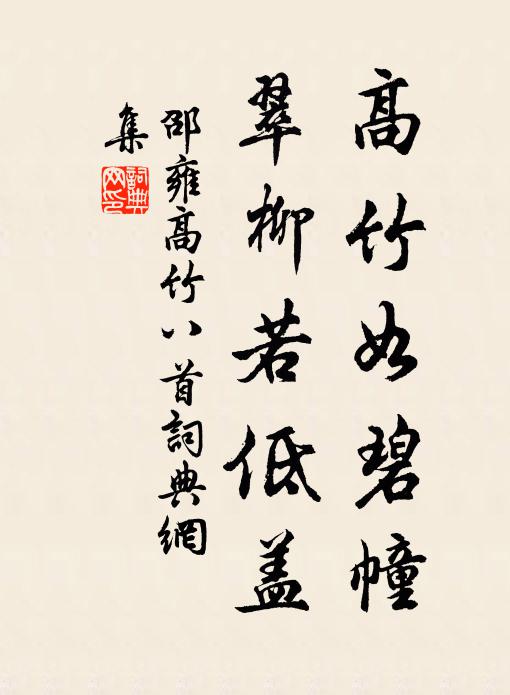 高竹如碧幢
翠柳若低盖
邵雍高竹八首詞典網
集
詞典
网印